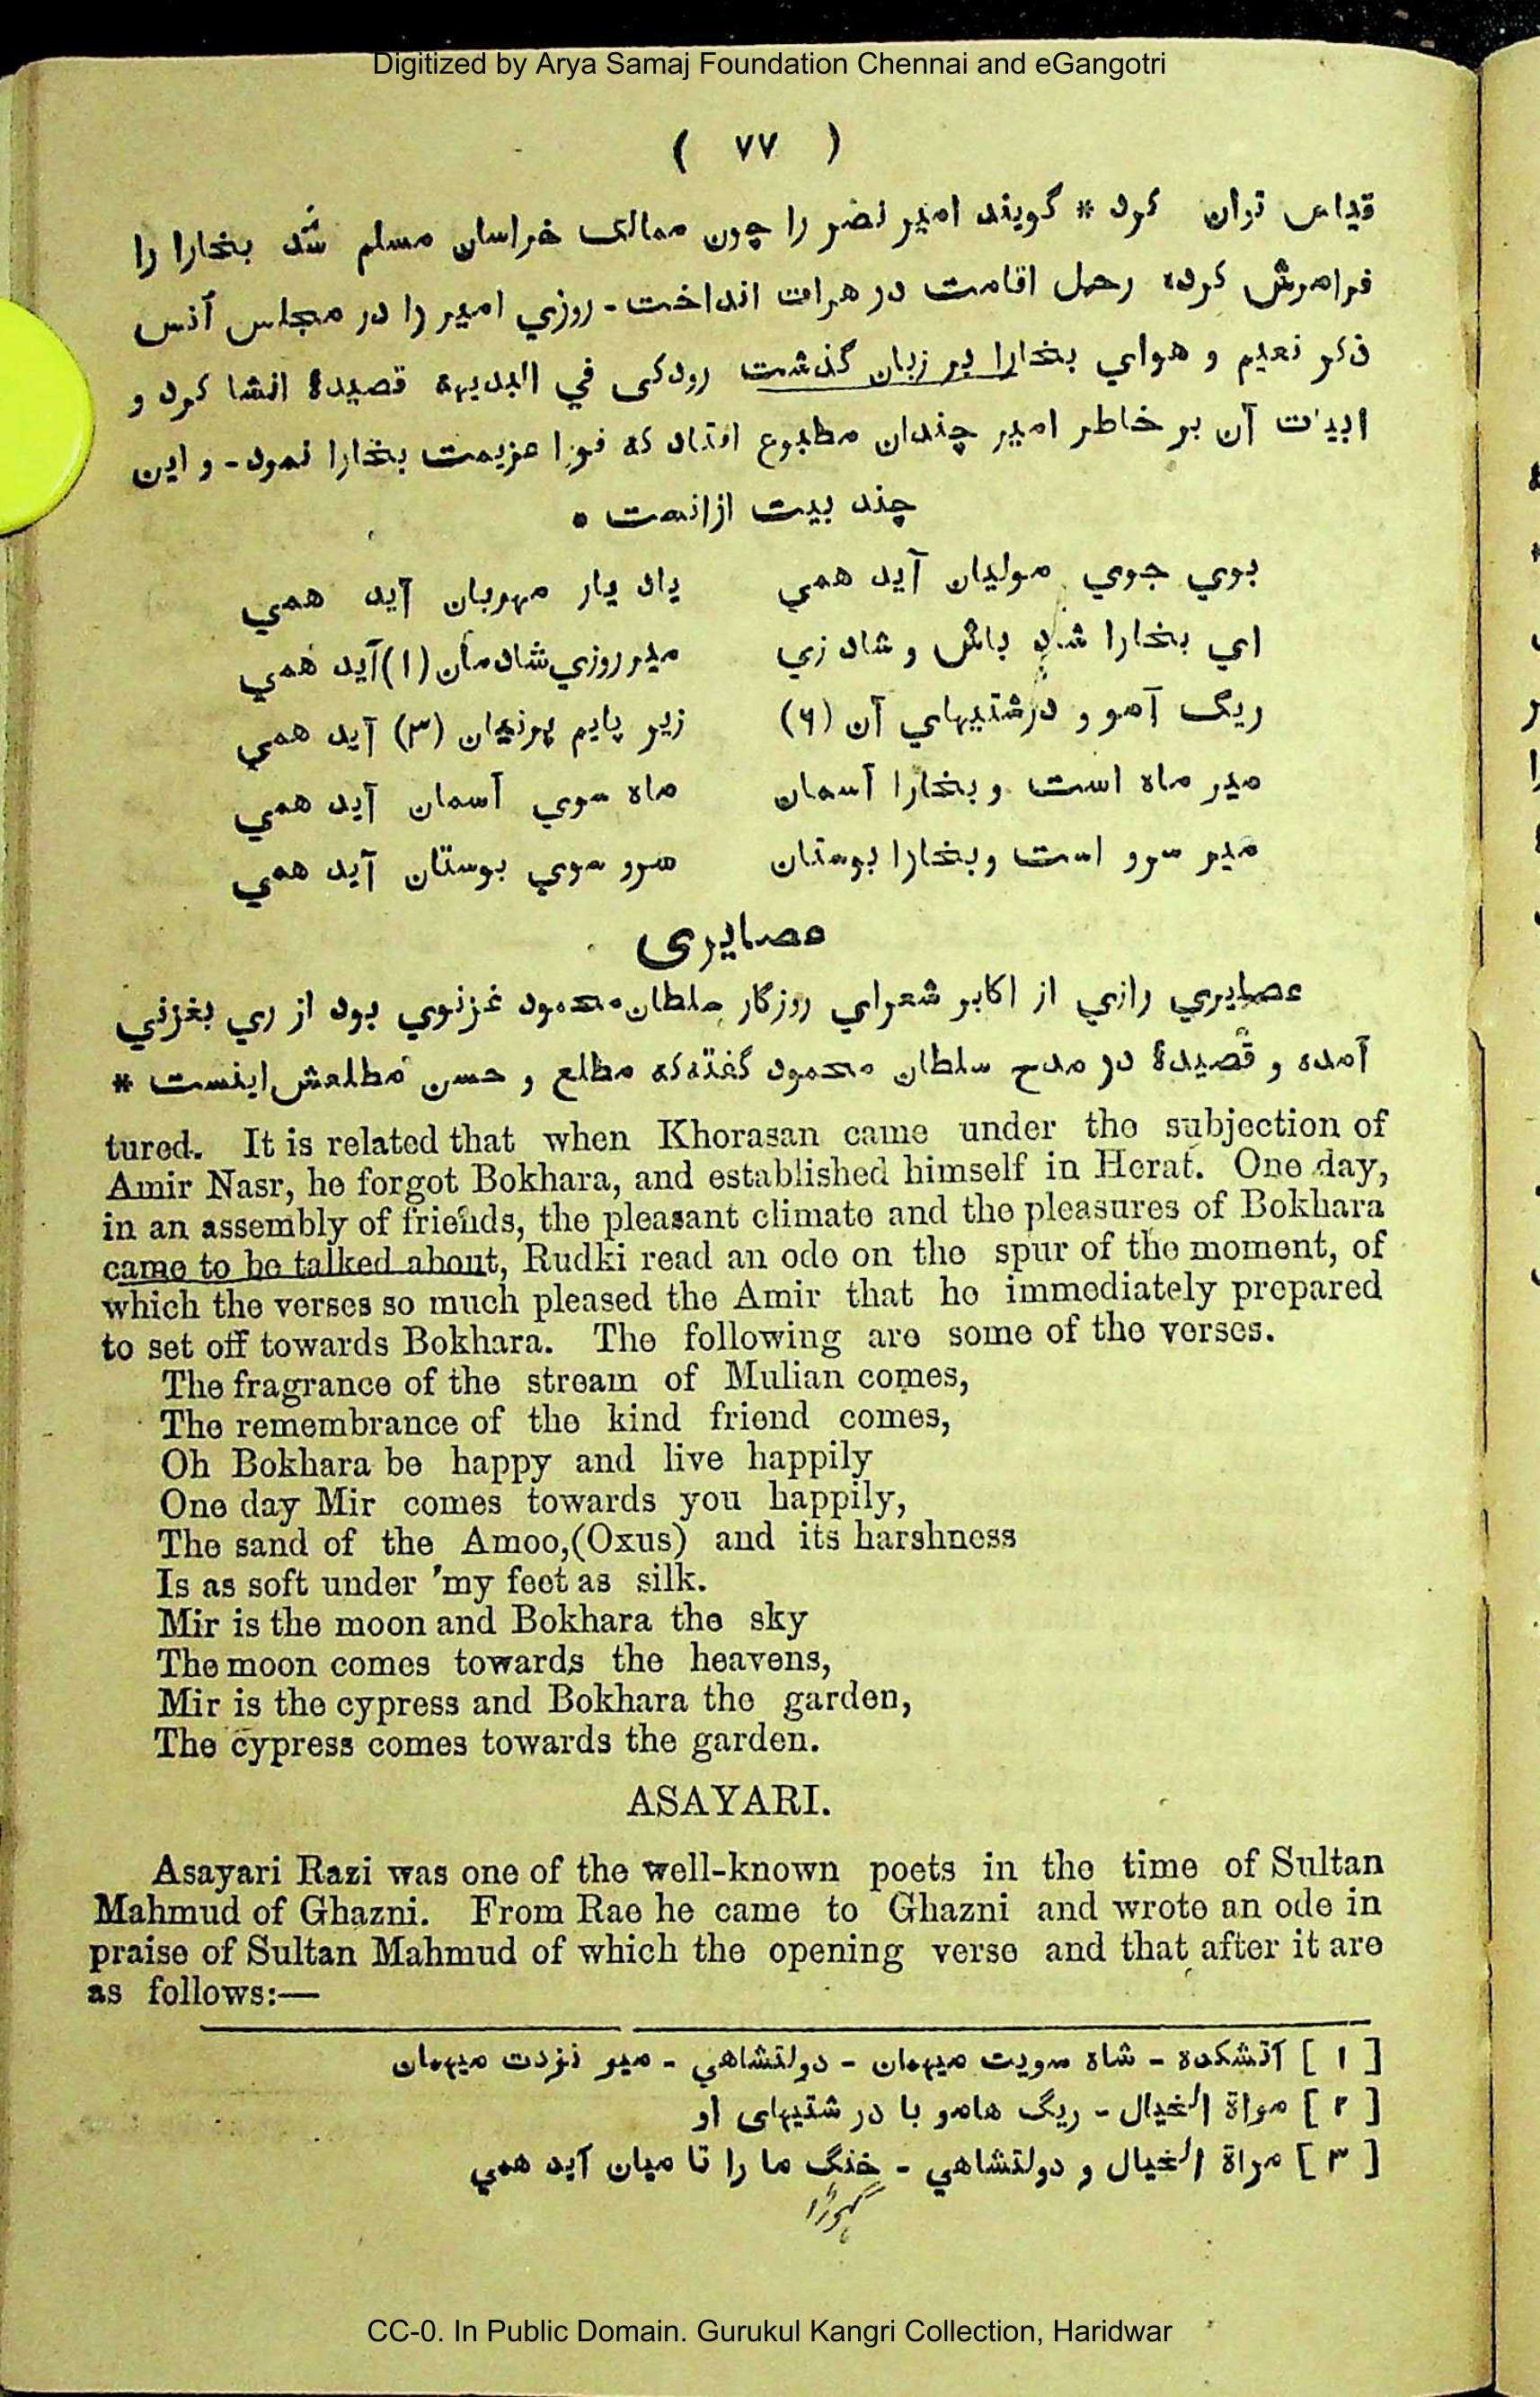 Digitized by Arya Samaj Foundation Chennai and eGangotri
( ٧٧ )
قياس توان كرد * گويند امير نضر را چون ممالک خراسان مسلم شد بخارا را
فراموش كرده رحل اقامت در هرات انداخت - روزي امير را در مجلس آنس
ذكر نعيم و هواي بخارا بر زبان گذشت رودكى في البديهه قصيدۀ انشا كرد و
ابيات آن بر خاطر امير چندان مطبوع افتاد كه فورا عزيمت بخارا نمود - و اين
چند بيت ازانست *
بوي جوي موليان آيد همي ياد يار مهربان آيد همي
اي بخارا شاد باش و شاد زي مير روزي شادمان (١) آيد همي
ريگ آمو و درشتيهاي آن (٢) زير پايم پرنيان (٣) آيد همي
مير ماه است و بخارا آسمان ماه سوي آسمان آيد همي
مير سرو است و بخارا بوستان سرو سوي بوستان آيد همي
عصايرى
عصايري رازي از اكابر شعراي روزگار سلطان محمود غزنوي بود از ري بغزني
آمده و قصيدۀ در مدح سلطان محمود گفته كه مطلع و حسن مطلعش اينست *
tured. It is related that when Khorasan came under the subjection of
Amir Nasr, he forgot Bokhara, and established himself in Herat. One day,
in an assembly of friends, the pleasant climate and the pleasures of Bokhara
came to be talked about, Rudki read an ode on the spur of the moment, of
which the verses so much pleased the Amir that he immediately prepared
to set off towards Bokhara. The following are some of the verses.
The fragrance of the stream of Mulian comes,
The remembrance of the kind friend comes,
Oh Bokhara be happy and live happily
One day Mir comes towards you happily,
The sand of the Amoo,(Oxus) and its harshness
Is as soft under 'my feet as silk.
Mir is the moon and Bokhara the sky
The moon comes towards the heavens,
Mir is the cypress and Bokhara the garden,
The cypress comes towards the garden.
ASAYARI.
Asayari Razi was one of the well-known poets in the time of Sultan
Mahmud of Ghazni. From Rae he came to Ghazni and wrote an ode in
praise of Sultan Mahmud of which the opening verse and that after it are
as follows:—
[ ١ ] آتشكده - شاه سويت ميهمان - دولتشاهي - مير نزدت ميهمان
[ ٢ ] مراة الخيال - ريگ هامو با درشتيهاى او
[ ٣ ] مراة الخيال و دولتشاهي - خنگ ما را تا ميان آيد همي
گھوڑا
CC-0. In Public Domain. Gurukul Kangri Collection, Haridwar